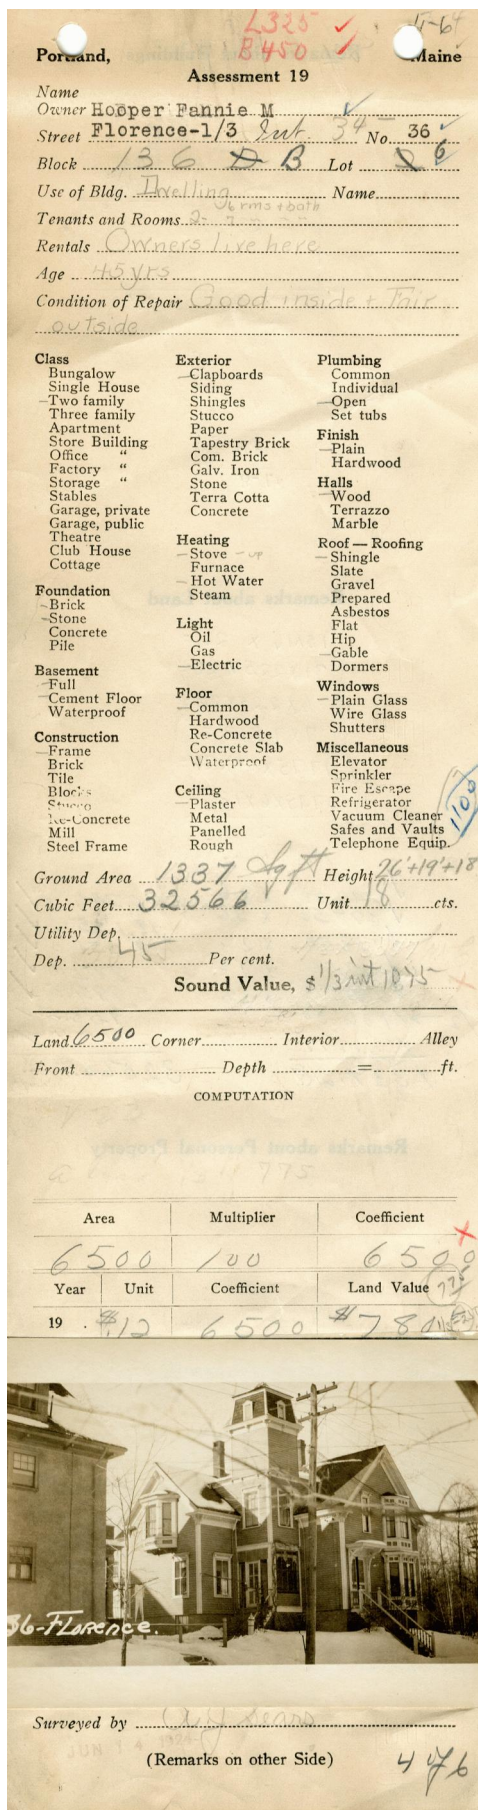 L325
B450
Portland, Maine
Assessment 19
Name
Owner Hooper Fannie M
Street Florence-1/3 Int. 34 No. 36
Block 136 B Lot 6
Use of Bldg. Dwelling Name
6 rms + bath
Tenants and Rooms 2- 7 " " "
Rentals Owners live here
Age 45 yrs
Condition of Repair Good inside + Fair
outside
Class
Bungalow
Single House
-Two family
Three family
Apartment
Store Building
Office "
Factory "
Storage "
Stables
Garage, private
Garage, public
Theatre
Club House
Cottage
Foundation
-Brick
-Stone
Concrete
Pile
Basement
-Full
-Cement Floor
Waterproof
Construction
-Frame
Brick
Tile
Blocks
Stucco
Re-Concrete
Mill
Steel Frame
Exterior
-Clapboards
Siding
Shingles
Stucco
Paper
Tapestry Brick
Com. Brick
Galv. Iron
Stone
Terra Cotta
Concrete
Heating
-Stove - up
Furnace
-Hot Water
Steam
Light
Oil
Gas
-Electric
Floor
-Common
Hardwood
Re-Concrete
Concrete Slab
Waterproof
Ceiling
-Plaster
Metal
Panelled
Rough
Plumbing
Common
Individual
-Open
Set tubs
Finish
-Plain
Hardwood
Halls
-Wood
Terrazzo
Marble
Roof — Roofing
-Shingle
Slate
Gravel
Prepared
Asbestos
Flat
Hip
-Gable
Dormers
Windows
-Plain Glass
Wire Glass
Shutters
Miscellaneous
Elevator
Sprinkler
Fire Escape
Refrigerator
Vacuum Cleaner
Safes and Vaults
Telephone Equip.
1100
Ground Area 1337 Sq ft Height 26'+19'+18
Cubic Feet 32566 Unit 18 cts.
Utility Dep.
Dep. 45 Per cent.
Sound Value, $ 1/3 int 1075
Land 6500 Corner Interior Alley
Front Depth = ft.
COMPUTATION
Remarks about Personal Property
775
Area Multiplier Coefficient
6500 100 6500
Year Unit Coefficient Land Value
19 . $.12 6500 $780
36-FLORENCE.
Surveyed by
JUN
(Remarks on other Side)
4 of 6